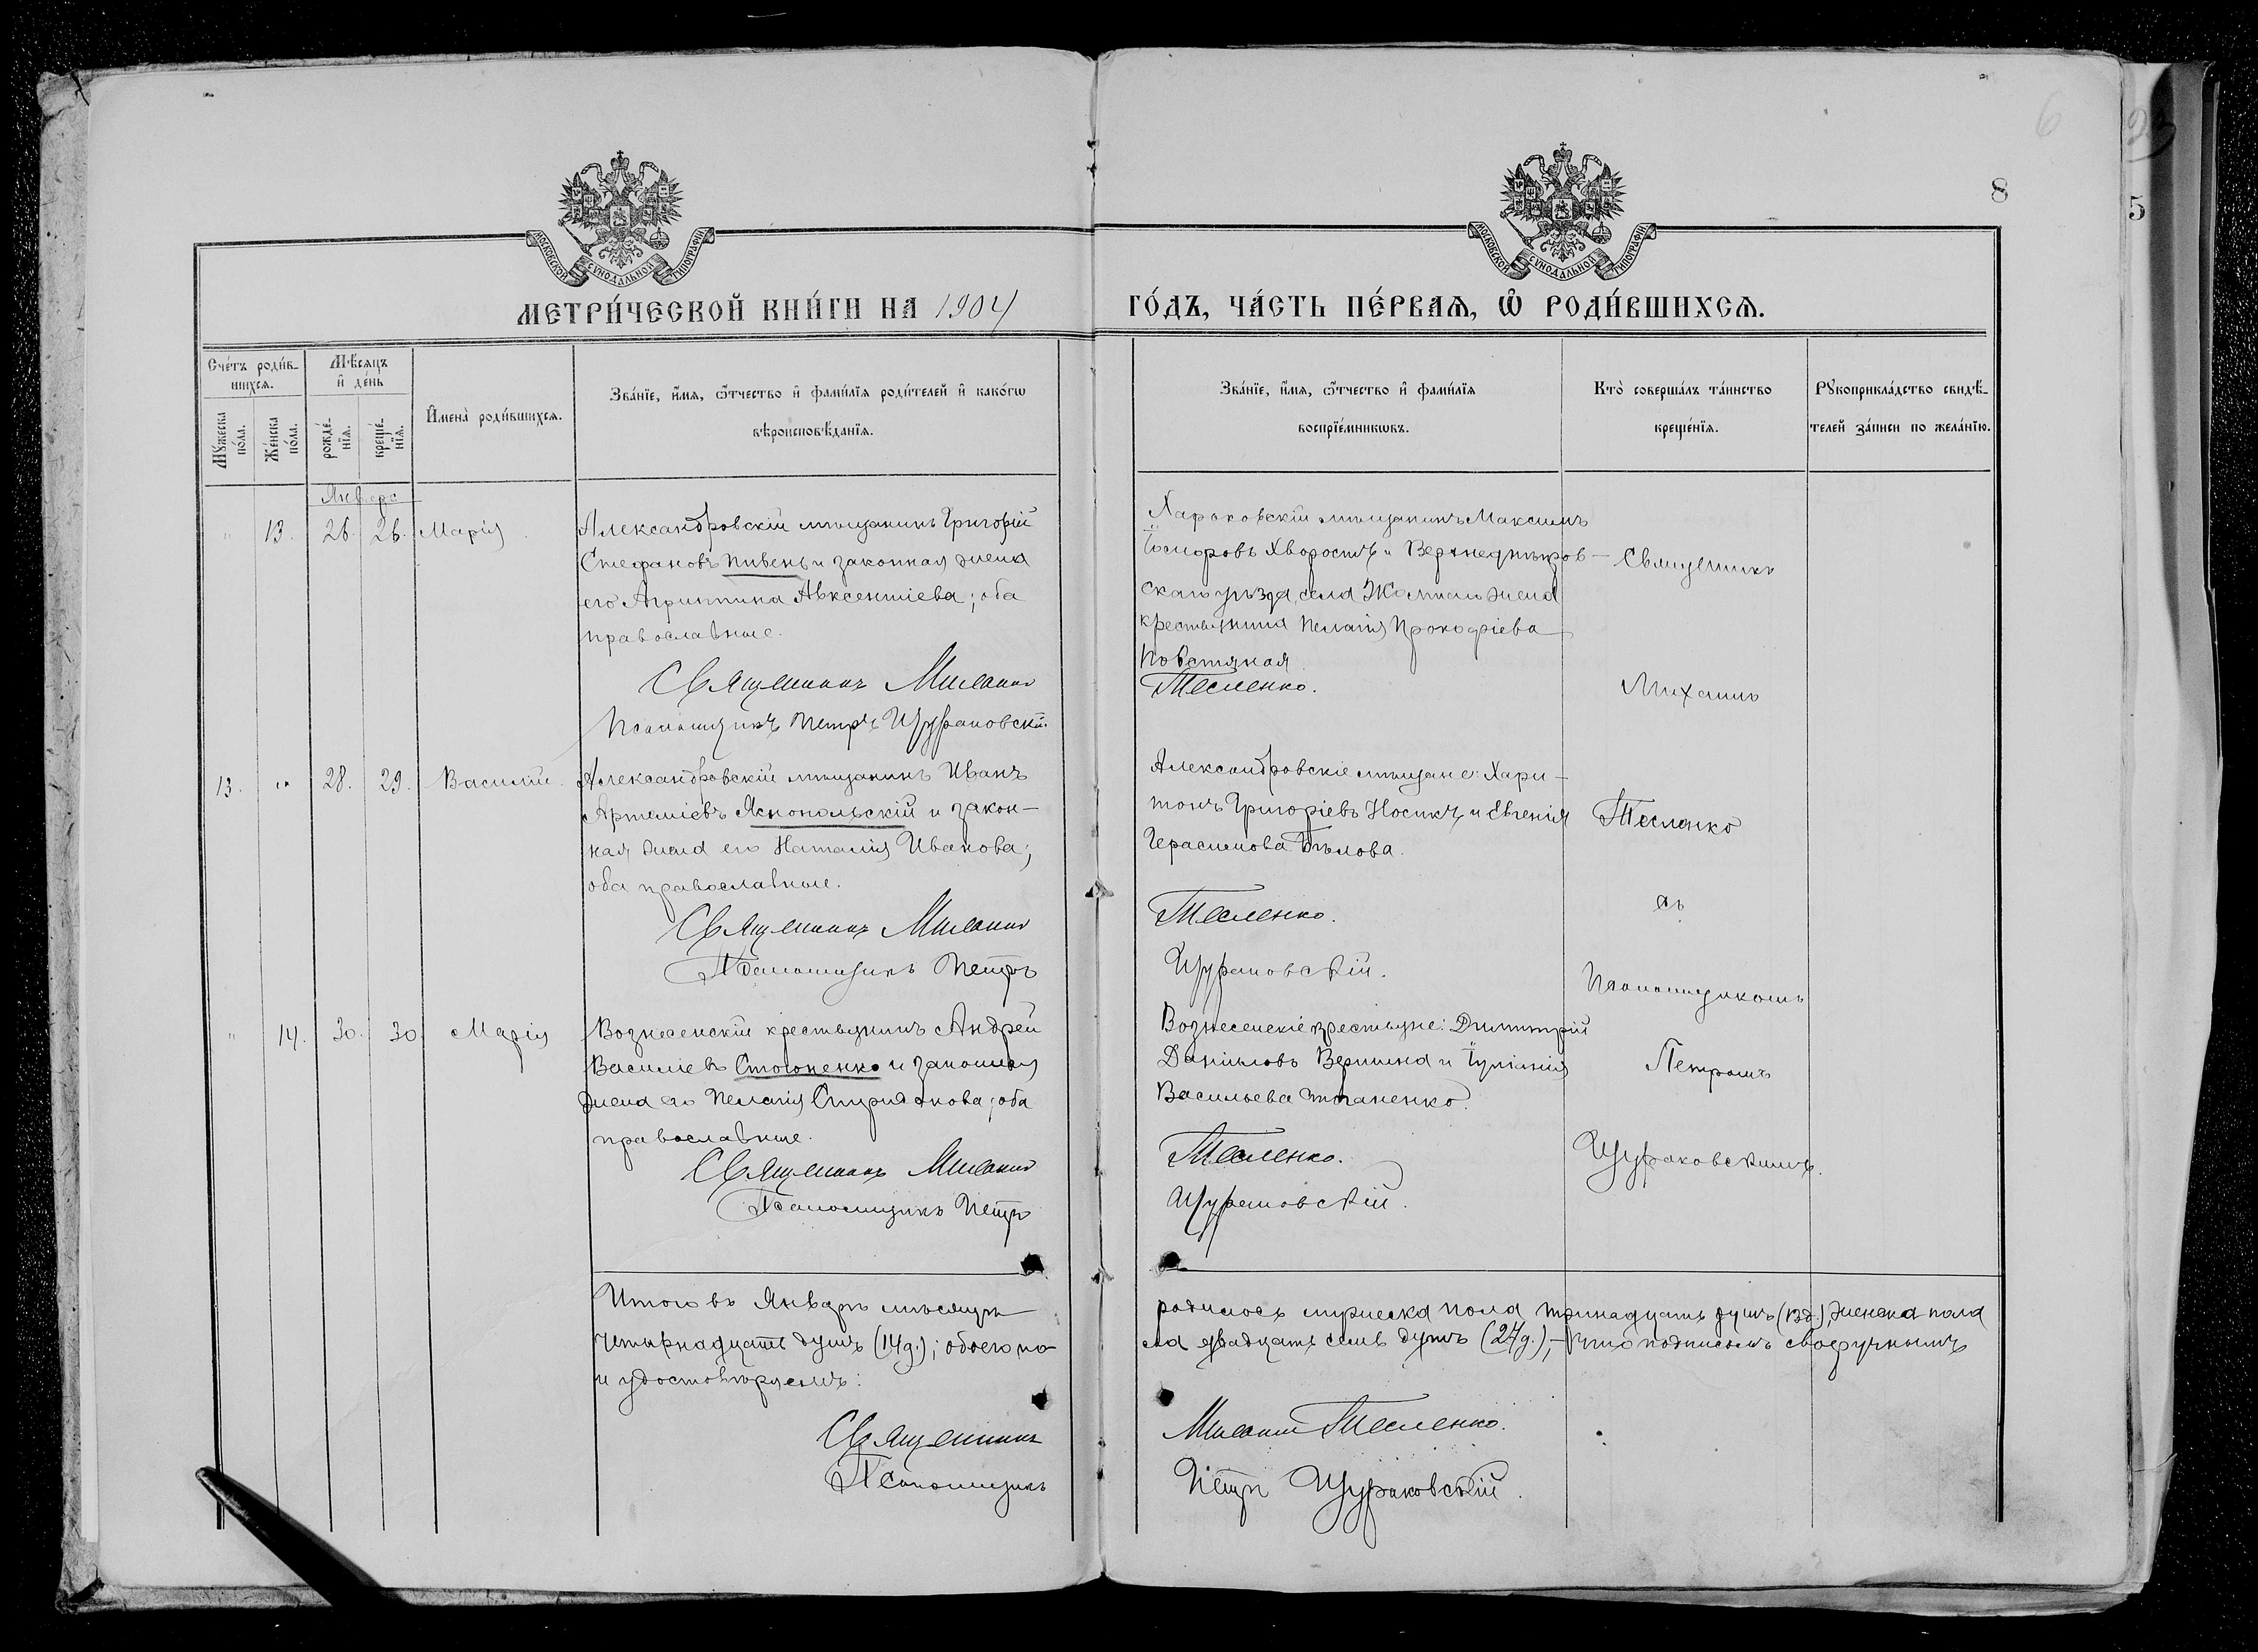 6
8
5
МОСКОВСКОЙ СѴНОДАЛЬНОЙ ТИПОГРАФІИ
МОСКОВСКОЙ СѴНОДАЛЬНОЙ ТИПОГРАФІИ
МЕТРИ́ЧЕСКОЙ КНИ́ГИ НА 1904 ГО́ДЪ, ЧА́СТЬ ПЕ́РВАѦ, Ѡ҆ РОДИ́ВШИХСѦ.
Сче́тъ роди́вшихсѧ.
Мꙋ́жеска по́ла.
Же́нска по́ла.
Мѣ́сѧцъ и҆ де́нь
рожде́нїѧ.
креще́нїѧ.
И҆мена̀ роди́вшихсѧ.
Зва́нїе, и҆́мѧ, ѻ҆́тчество и҆ фами́лїѧ роди́телей и҆ како́гѡ
вѣроисповѣ́данїѧ.
Зва́нїе, и҆́мѧ, ѻ҆́тчество и҆ фами́лїѧ
воспрїе́мникѡвъ.
Кто̀ соверша́лъ та́инство
креще́нїѧ.
Рꙋкоприкла́дство свидѣ́-
телей за́писи по жела́нїю.
Январь
" 13. 26. 26. Марія
Александровскій мѣщанинъ Григорій
Стефановъ Пивень и законная жена
его Агриппина Авксентіева; оба
православные.
Священникъ Михаилъ
Псаломщикъ Петръ Щураковскій.
Харьковскій мѣщанинъ Максимъ
Хворостъ и Верхнеднѣпров-
скаго уѣзда, села жена
крестьянина Пелагія Прокофіева
Повстяная
Тесленко.
Священникъ
Михаилъ
13. " 28. 29. Василій.
Александровскій мѣщанинъ Иванъ
Артеміевъ Яснопольскій и закон-
ная жена его Наталія Иванова;
оба православные.
Священникъ Михаилъ
Псаломщикъ Петръ
Александровскіе мѣщане: Хари-
тонъ Григоріевъ Носикъ и Евгенія
Герасимова Бѣлова.
Тесленко.
Щураковскій.
Тесленко
съ
Псаломщикомъ
" 14. 30. 30 Марія
Вознесенскій крестьянинъ Андрей
Василіевъ Стогоненко и законная
жена его Пелагія Спиридонова; оба
православные.
Священникъ Михаилъ
Псаломщикъ Петръ
Вознесенскіе крестьяне: Димитрій
Даніиловъ Вершина и Іуліанія
Васильева
Тесленко.
Щураковскій.
Петромъ
Щураковскимъ.
Итого въ Январѣ мѣсяцѣ родилось мужеска пола тринадцать душъ (13 д.), женска пола
четырнадцать душъ (14 д.); обоего по-ла двадцать семь душъ (27 д.), - что подписомъ своеручнымъ
и удостовѣряемъ:
Священникъ Михаилъ Тесленко.
Псаломщикъ Петръ Щураковскій.